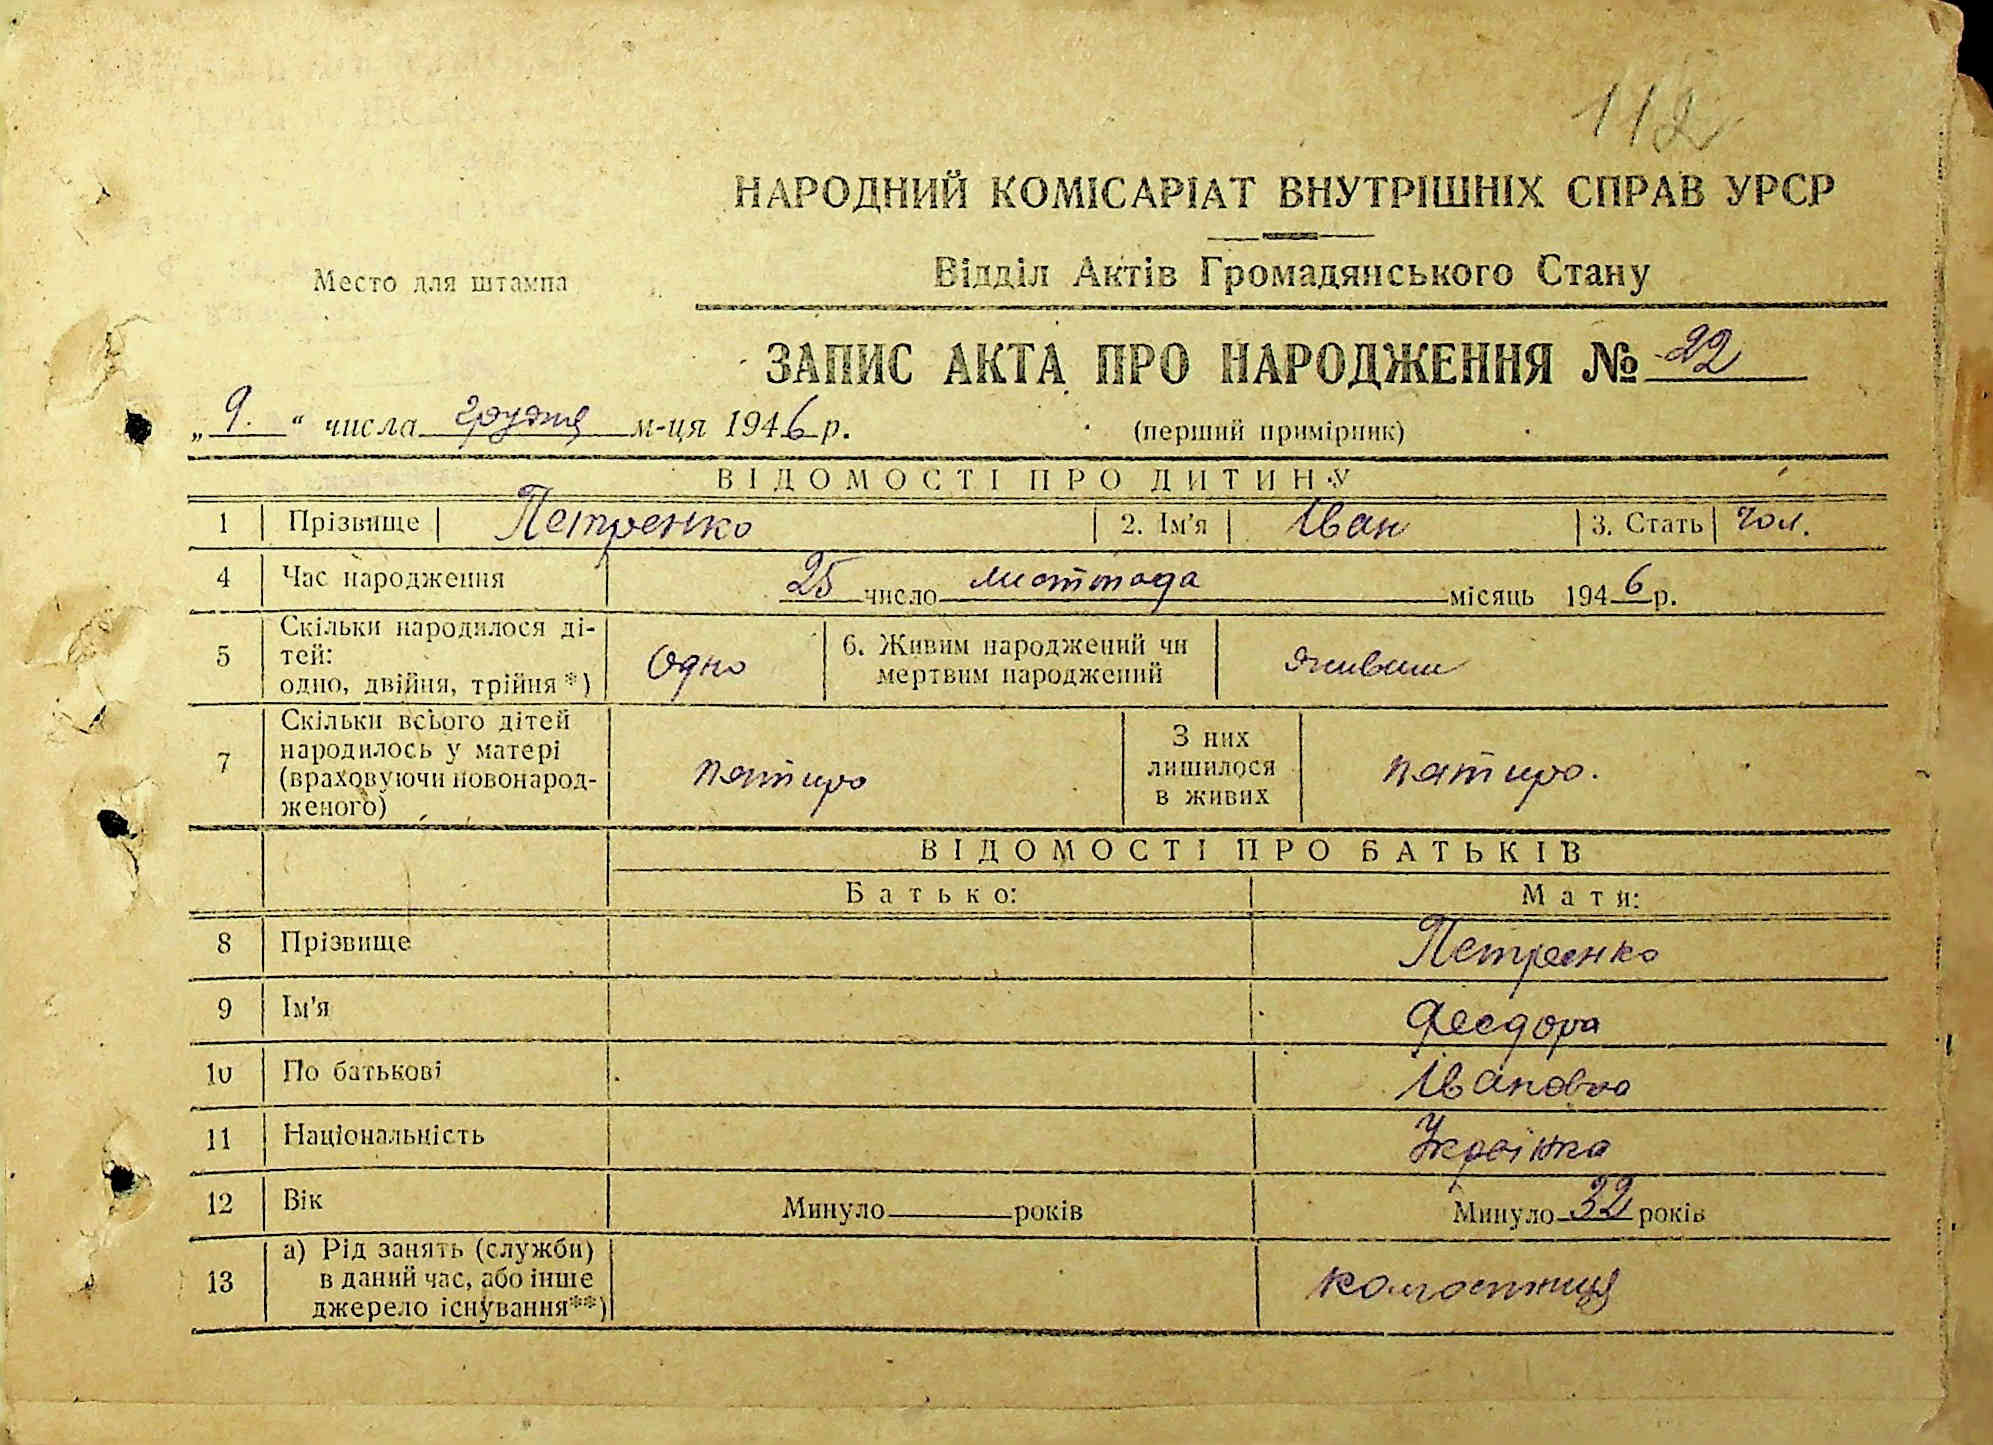 112
НАРОДНИЙ КОМІСАРІАТ ВНУТРІШНІХ СПРАВ УРСР
Место для штампа
Відділ Актів Громадянського Стану
ЗАПИС АКТА ПРО НАРОДЖЕННЯ № 22
„9.“ числа грудня м-ця 1946 р.
(перший примірник)
ВІДОМОСТІ ПРО ДИТИНУ
1 Прізвище Петренко 2. Ім'я Іван 3. Стать чол.
4 Час народження 25 число листопада місяць 1946 р.
5 Скільки народилося ді-
тей:
одно, двійня, трійня *) Одно
6. Живим народжений чи
мертвим народжений живим
7 Скільки всього дітей
народилось у матері
(враховуючи новонарод-
женого) пятиро
З них
лишилося
в живих пятиро.
ВІДОМОСТІ ПРО БАТЬКІВ
Батько: Мати:
8 Прізвище Петренко
9 Ім'я Феодора
10 По батькові Івановна
11 Національність Украінка
12 Вік Минуло років Минуло 32 років
13 а) Рід занять (служби)
в даний час, або інше
джерело існування**) колгоспниця